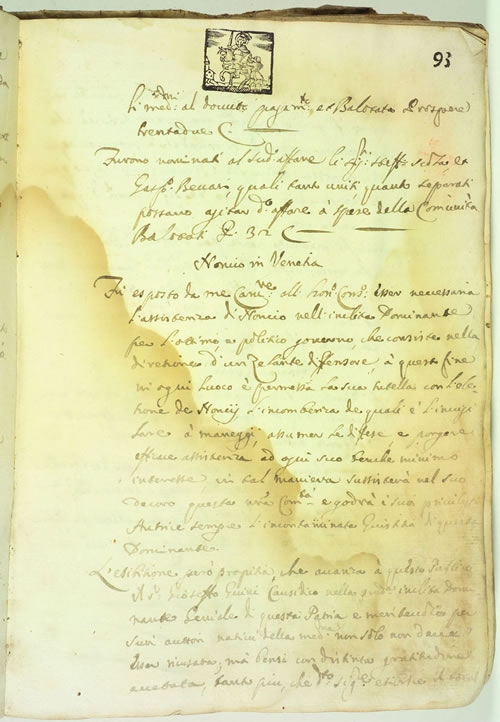 93
li med.mi al dovuto pagam.to, et Balotata P. prospere
trentadue
Furono nominati al sud.o affare li Sig.ri Steff.o Scotti et
Gasp.o Beccari quali tanto uniti quanto separati
possano agitar d.o affare à spese della Comunità
Balotati P. 32
Noncio in Venetia
Fù esposto da me Canc.re all' hon.o Cons.o esser necessaria
l'assistenza di Noncio nell' inclita Dominante
per l'ottimo e politico governo, che consiste nella
diretione d'un zelante diffensore, à questo fine
in ogni luoco è permessa la sua tutella con l'ele-
tione de Noncij l'incombenza de quali è l'invigi-
lare à maneggi, assumer le difese e porgere
efficace assistenza ad ogni suo benche minimo
interesse in tal maniera sussisterà nel suo
decoro questa n'ra Com.tà e godrà i suoi privileggi
Autrice sempre l'incontaminata Giustitia di questa
Dominante.
L'esibitione però propitia, che avanza à questo Publico
il S.r Giuseffo Causidico nella pred.a inclita Domi-
nante Geniale di questa Patria e meritando per
suoi auttori nativi della med.ma non solo non deve
esser ricusata, mà bensi con distinta gratitudine
accettata, tanto più, che d.to Sig.r